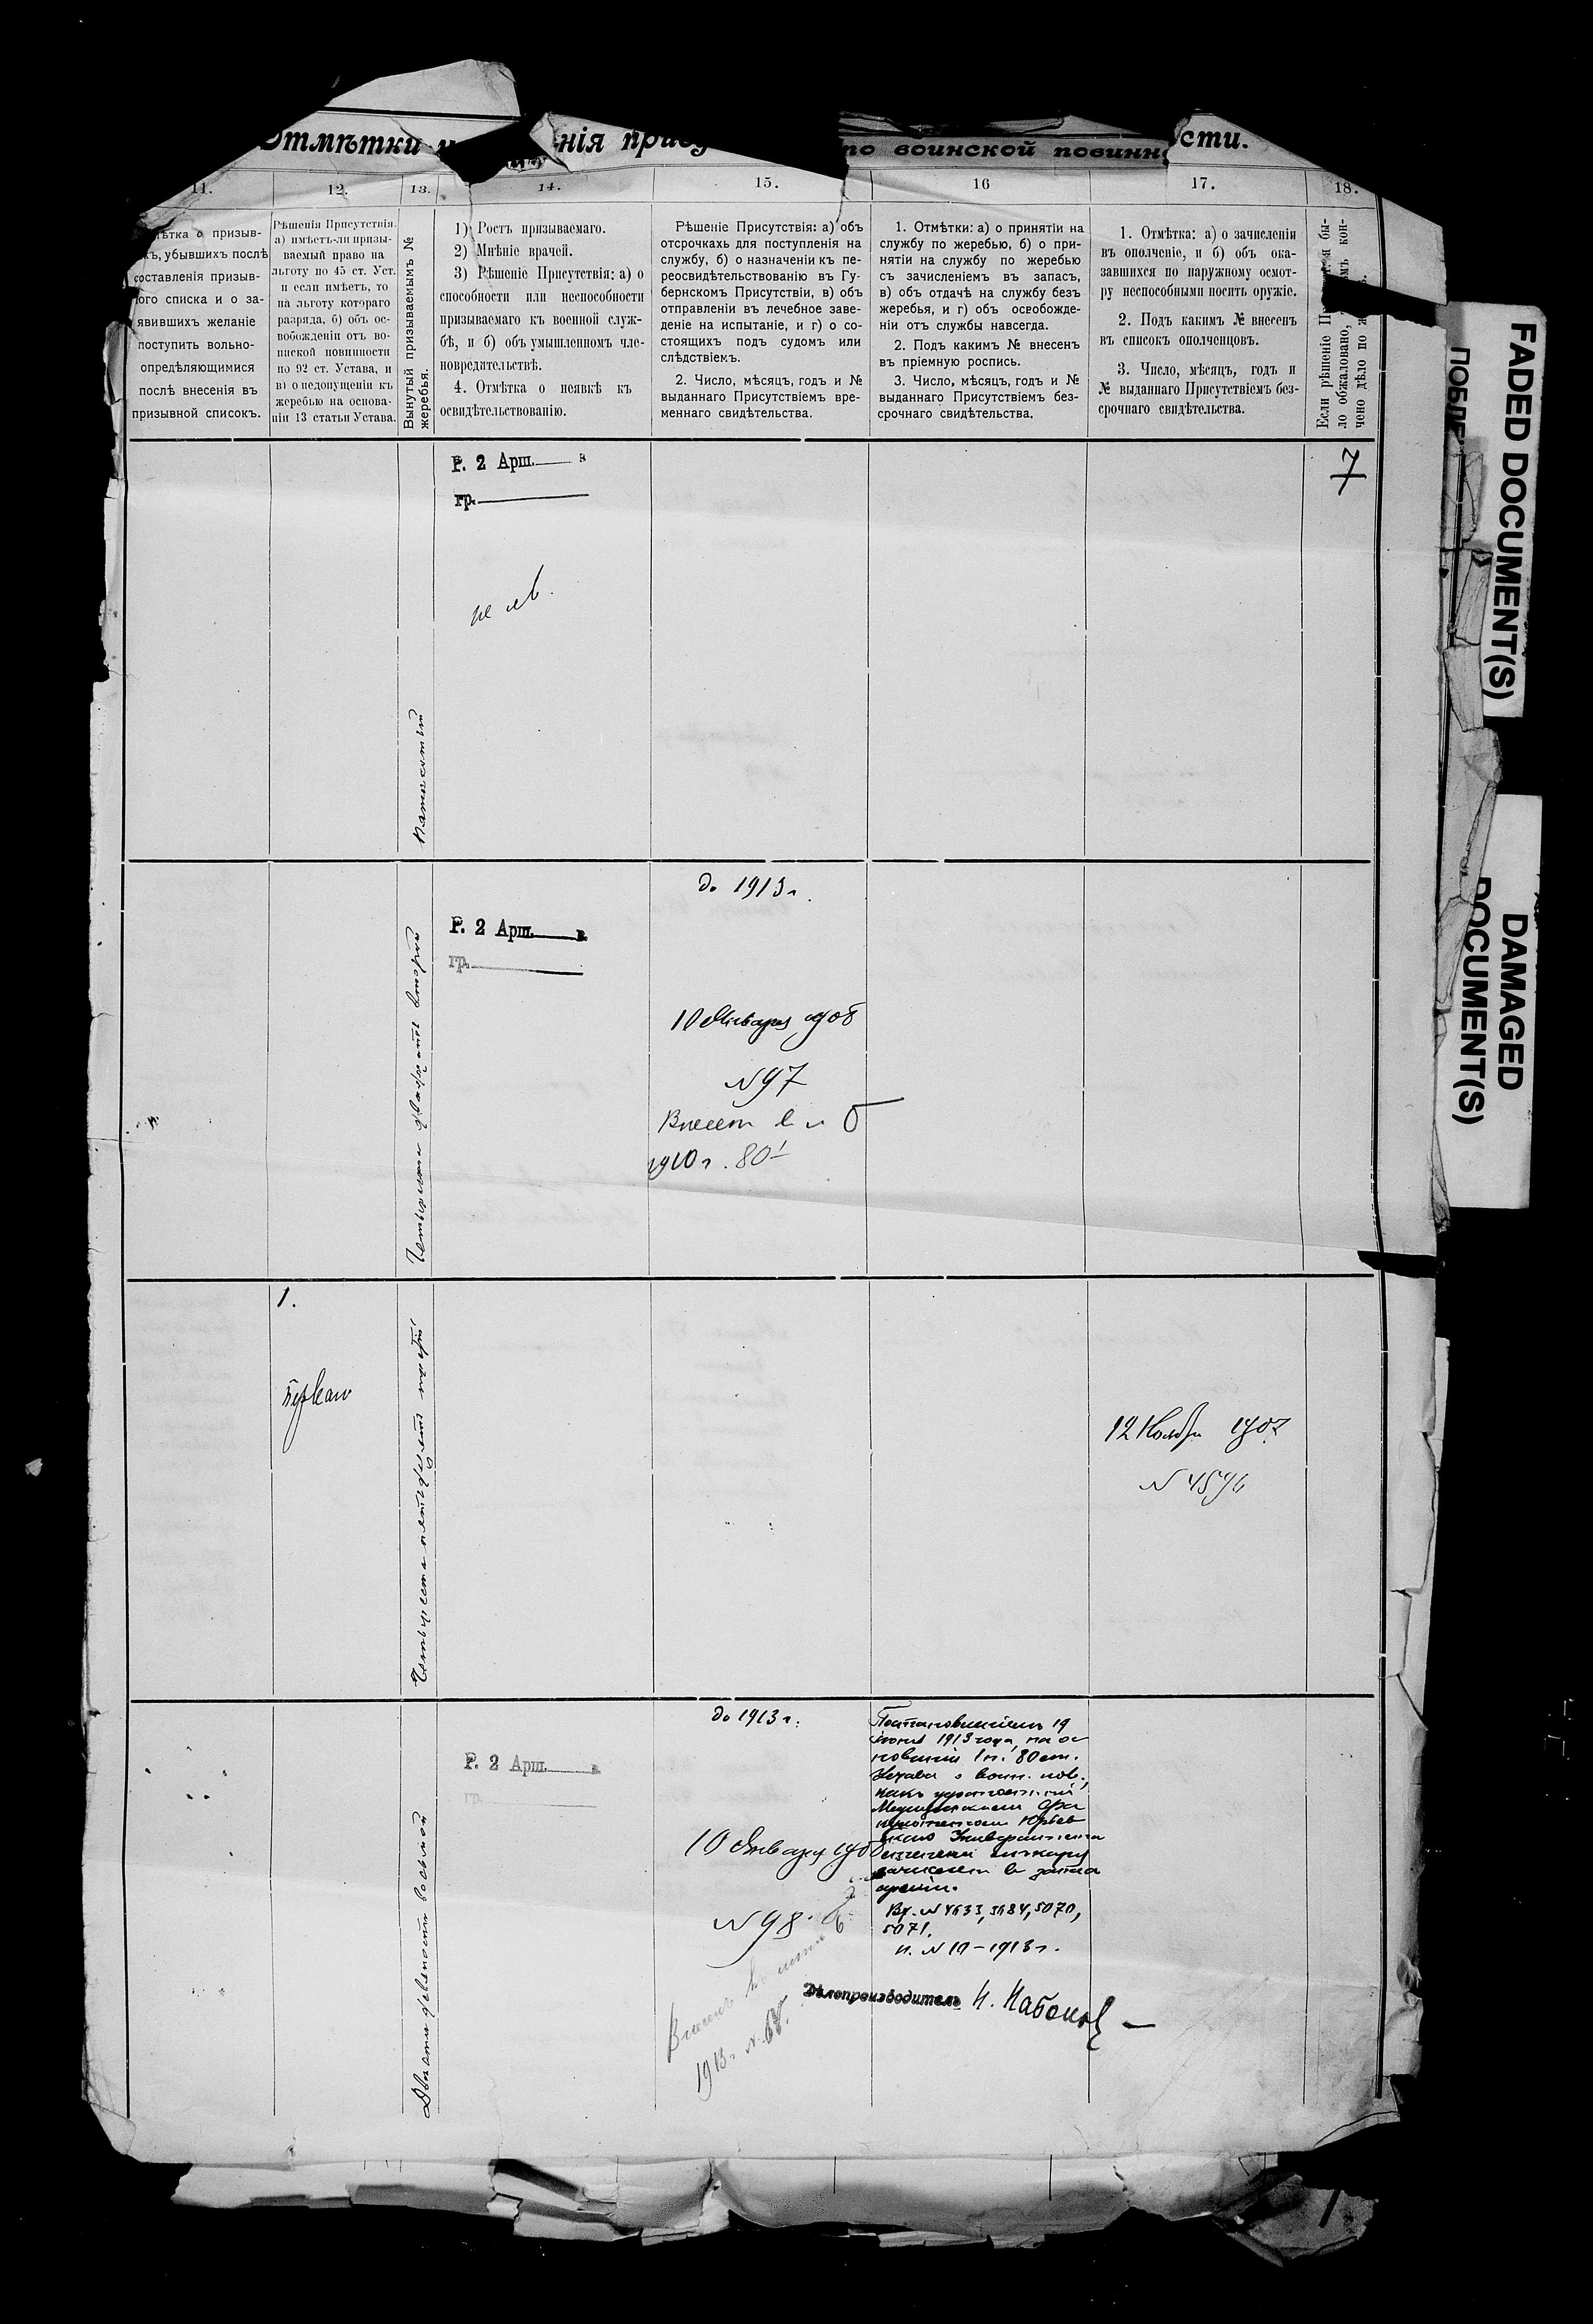 Отмѣтки нія прису по воинской повинн сти.
11.
12.
13.
14.
15.
16
17.
18.
ѣтка о призыв-
хъ, убывшихъ послѣ
составленія призыв-
ого списка и о за-
явившихъ желаніе
поступить вольно-
опредѣляющимися
послѣ внесенія въ
призывной списокъ.
Рѣшенія Присутствія.
а) имѣетъ-ли призы-
ваемый право на
льготу по 45 ст. Уст.
и если имѣетъ, то
на льготу котораго
разряда, б) объ ос-
вобожденіи отъ во-
инской повинности
по 92 ст. Устава, и
в) о недопущеніи къ
жеребью на основа-
ніи 13 статьи Устава.
Вынутый призываемымъ №
жеребья.
1) Ростъ призываемаго.
2) Мнѣніе врачей.
3) Рѣшеніе Присутствія: а) о
способности или неспособности
призываемаго къ военной служ-
бѣ, и б) объ умышленномъ чле-
новредительствѣ.
4. Отмѣтка о неявкѣ къ
освидѣтельствованію.
Рѣшеніе Присутствія: а) объ
отсрочкахъ для поступленія на
службу, б) о назначеніи къ пе-
реосвидѣтельствованію въ Гу-
бернскомъ Присутствіи, в) объ
отправленіи въ лечебное заве-
деніе на испытаніе, и г) о со-
стоящихъ подъ судомъ или
слѣдствіемъ.
2. Число, мѣсяцъ, годъ и №
выданнаго Присутствіемъ вре-
меннаго свидѣтельства.
1. Отмѣтки: а) о принятіи на
службу по жеребью, б) о при-
нятіи на службу по жеребью
съ зачисленіемъ въ запасъ,
в) объ отдачѣ на службу безъ
жеребья, и г) объ освобожде-
ніи отъ службы навсегда.
2. Подъ какимъ № внесенъ
въ пріемную роспись.
3. Число, мѣсяцъ, годъ и №
выданнаго Присутствіемъ без-
срочнаго свидѣтельства.
1. Отмѣтка: а) о зачисленіи
въ ополченіе, и б) объ ока-
завшихся по наружному осмот-
ру неспособными носить оружіе.
2. Подъ какимъ № внесенъ
въ списокъ ополченцовъ.
3. Число, мѣсяцъ, годъ и
№ выданнаго Присутствіемъ без-
срочнаго свидѣтельства.
Если рѣшеніе П я бы-
ло обжаловано, мъ кон-
чено дѣло по ж
Р. 2 Арш. в
гр.
7
до 1913 г.
Р. 2 Арш. в
гр.
Четыреста двадцать второй
10 Января 1908
№ 97
Внесен в
1910 г. 801
1.
Первая
12 Ноября 1907
№ 4596
до 1913 г.
Р. 2 Арш. в
гр.
Двѣсти девяносто восьмой
10 Января 1908
№ 98.
Постановленіемъ 19
1913 года, на ос
нованіи 1 п. 80 ст.
Устава о воин. пов.,
какъ удостоенный
Медицинскимъ Фа
культетомъ Юрьев
скаго Университета
степени лекаря
зачислен в запас
арміи.
Вх. № 4633, 3684, 5070,
5071.
н. № 10-1913 г.
Дѣлопроизводитель
FADED DOCUMENT(S)
ПОБЛЕ
DAMAGED
DOCUMENT(S)